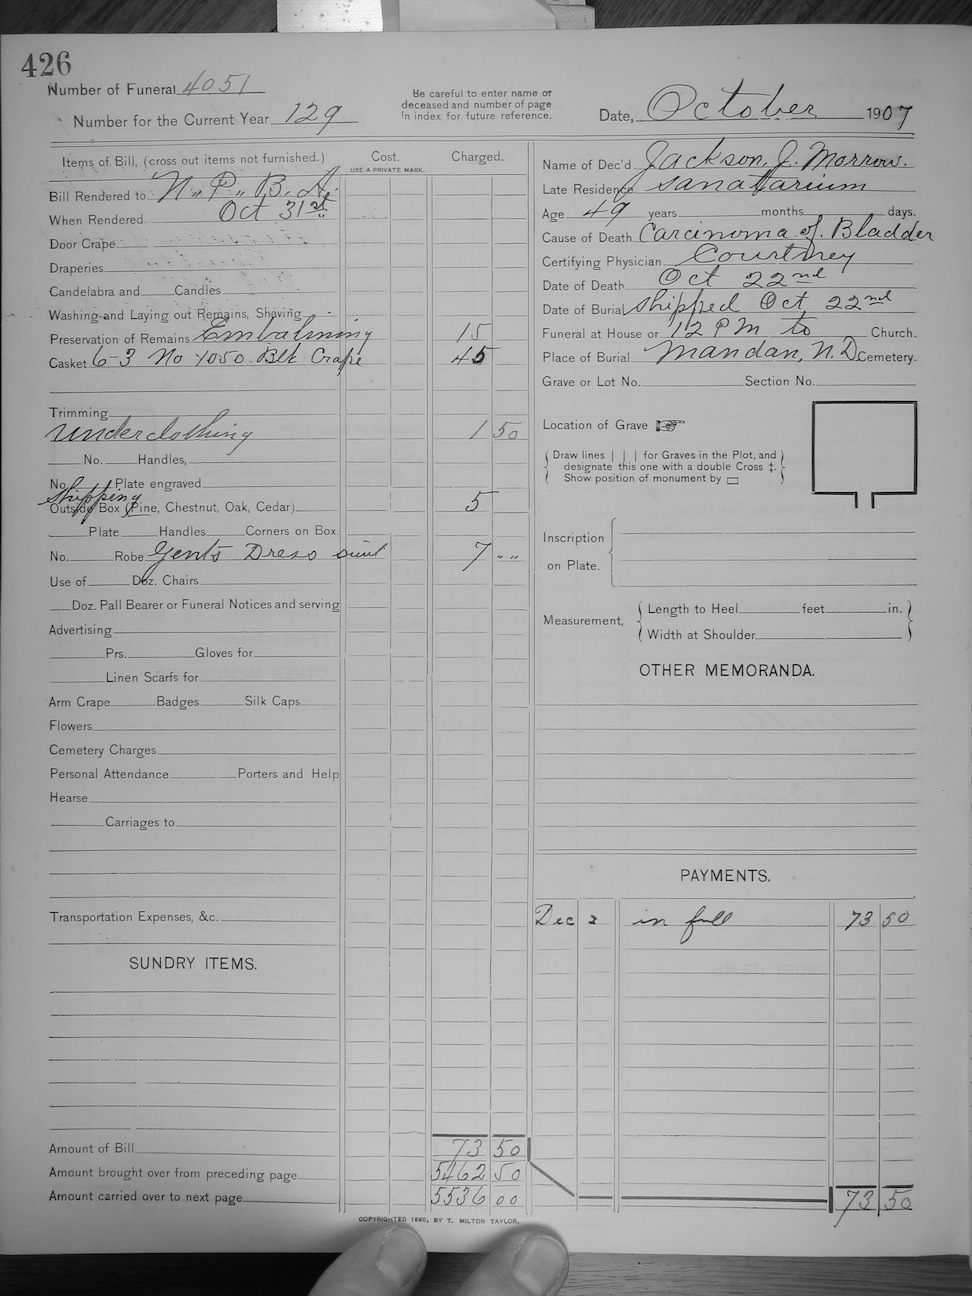 426
Number of Funeral 4051
Number for the Current Year 129
Be careful to enter name of
deceased and number of page
in index for future reference.
Date, October 1907
Items of Bill, (cross out items not furnished.) Cost. Charged.
USE A PRIVATE MARK.
Bill Rendered to N.. P.. B. A.
When Rendered Oct 31st
Door Crape
Draperies
Candelabra and Candles
Washing and Laying out Remains, Shaving
Preservation of Remains Embalming 15
Casket 6-3 No 1050 Blk Crape 45
Trimming
Underclothing 1 50
No. Handles,
No. Plate engraved
Shipping
Outside Box (Pine, Chestnut, Oak, Cedar) 5
Plate Handles Corners on Box.
No. Robe Gents Dress suit 7 " "
Use of Doz. Chairs
Doz. Pall Bearer or Funeral Notices and serving
Advertising
Prs. Gloves for
Linen Scarfs for
Arm Crape Badges Silk Caps
Flowers
Cemetery Charges
Personal Attendance Porters and Help
Hearse
Carriages to
Transportation Expenses, &c.
SUNDRY ITEMS.
Amount of Bill 73 50
Amount brought over from preceding page 5462 50
Amount carried over to next page 5536 00
Name of Dec'd Jackson, J. Morrow.
Late Residence Sanatarium
Age 49 years months days.
Cause of Death Carcinoma of Bladder
Certifying Physician Courtney
Date of Death Oct 22nd
Date of Burial Shipped Oct 22nd
Funeral at House or 12 PM to Church.
Place of Burial Mandan, N. D. Cemetery.
Grave or Lot No. Section No.
Location of Grave ☞
Draw lines | | | for Graves in the Plot, and
designate this one with a double Cross ‡.
Show position of monument by ▭
Inscription
on Plate.
Measurement, Length to Heel feet in.
Width at Shoulder
OTHER MEMORANDA.
PAYMENTS.
Dec 2 in full 73 50
73 50
COPYRIGHTED 1890, BY T. MILTON TAYLOR.